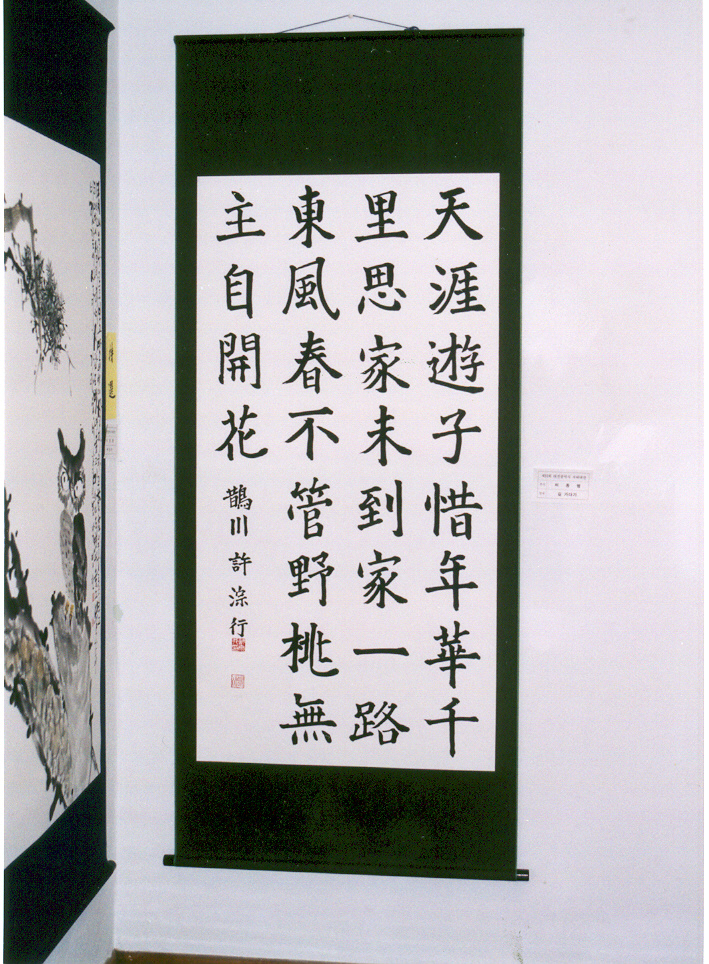 天涯遊子惜年華千
里思家未到家一路
東風春不管野桃無
主自開花
鵲川 許淙行
特選